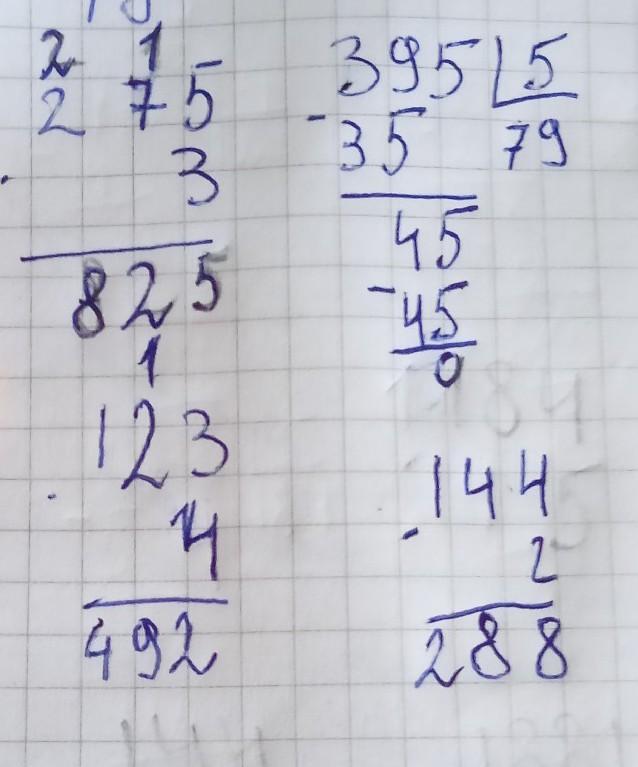 2 1
2 75
· 3
825
1
123
· 4
492
395 5
- 35 79
45
- 45
0
144
· 2
288